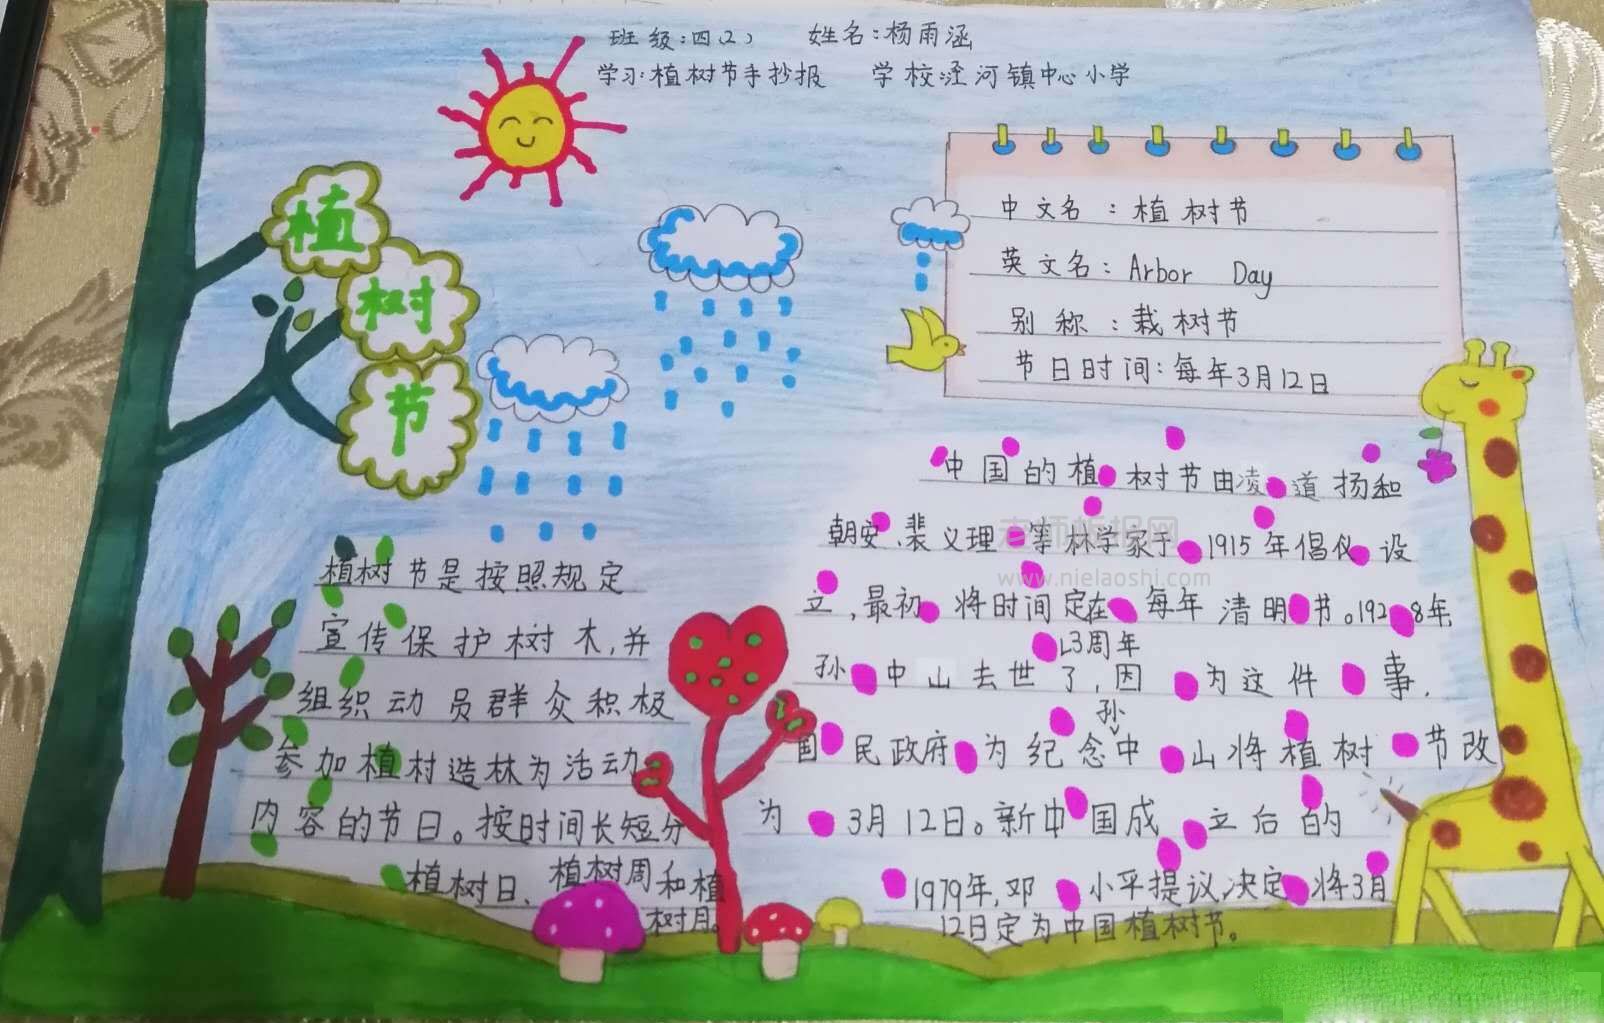 班级:四(2) 姓名:杨雨涵
学习:植树节手抄报 学校泾河镇中心小学
植
树
节
中文名:植树节
英文名:Arbor Day
别称:栽树节
节日时间:每年3月12日
植树节是按照规定
宣传保护树木,并
组织动员群众积极
参加植村造林为活动
内容的节日。按时间长短分
植树日、植树周和植
树月。
中国的植树节由凌道扬和
朝安、裴义理等林学家于1915年倡仪设
立,最初将时间定在每年清明节。1928年,
孙中山去世了,因为这件事,
3周年
国民政府为纪念孙中山将植树节改
为3月12日。新中国成立后的
1979年,邓小平提议决定将3月
12日定为中国植树节。
老师板报网
www.nielaoshi.com